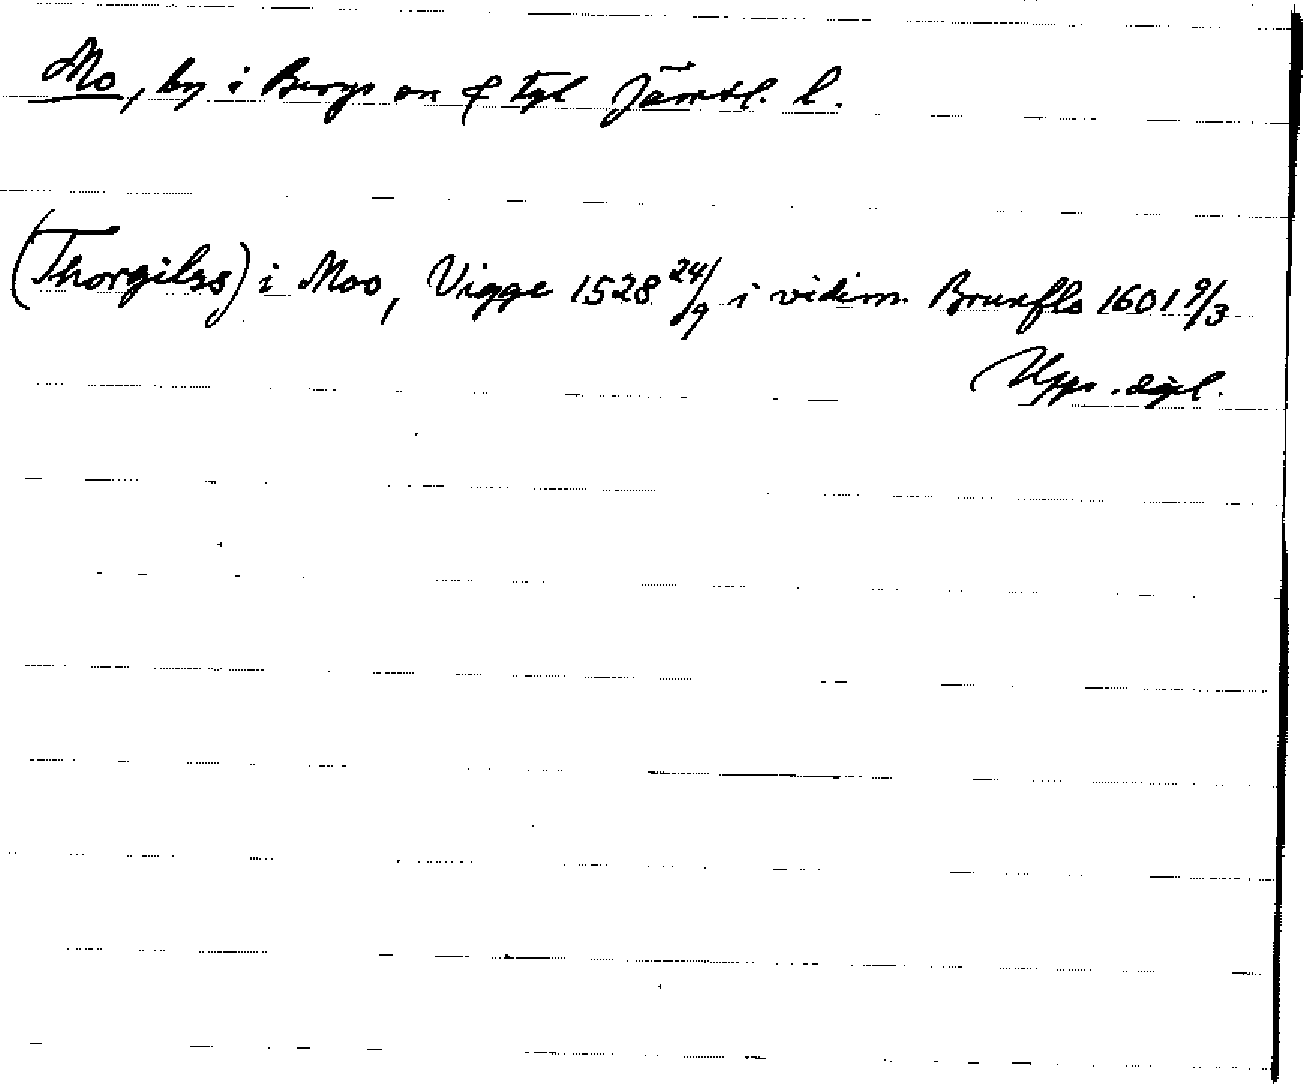 Mo, by i Bergs sn o tgl Jämtl. l.
(Thorgilss) i Moo, Vigge 1528 24/9 i vidim. Brunflo 1601 9/3
Upps. dipl.